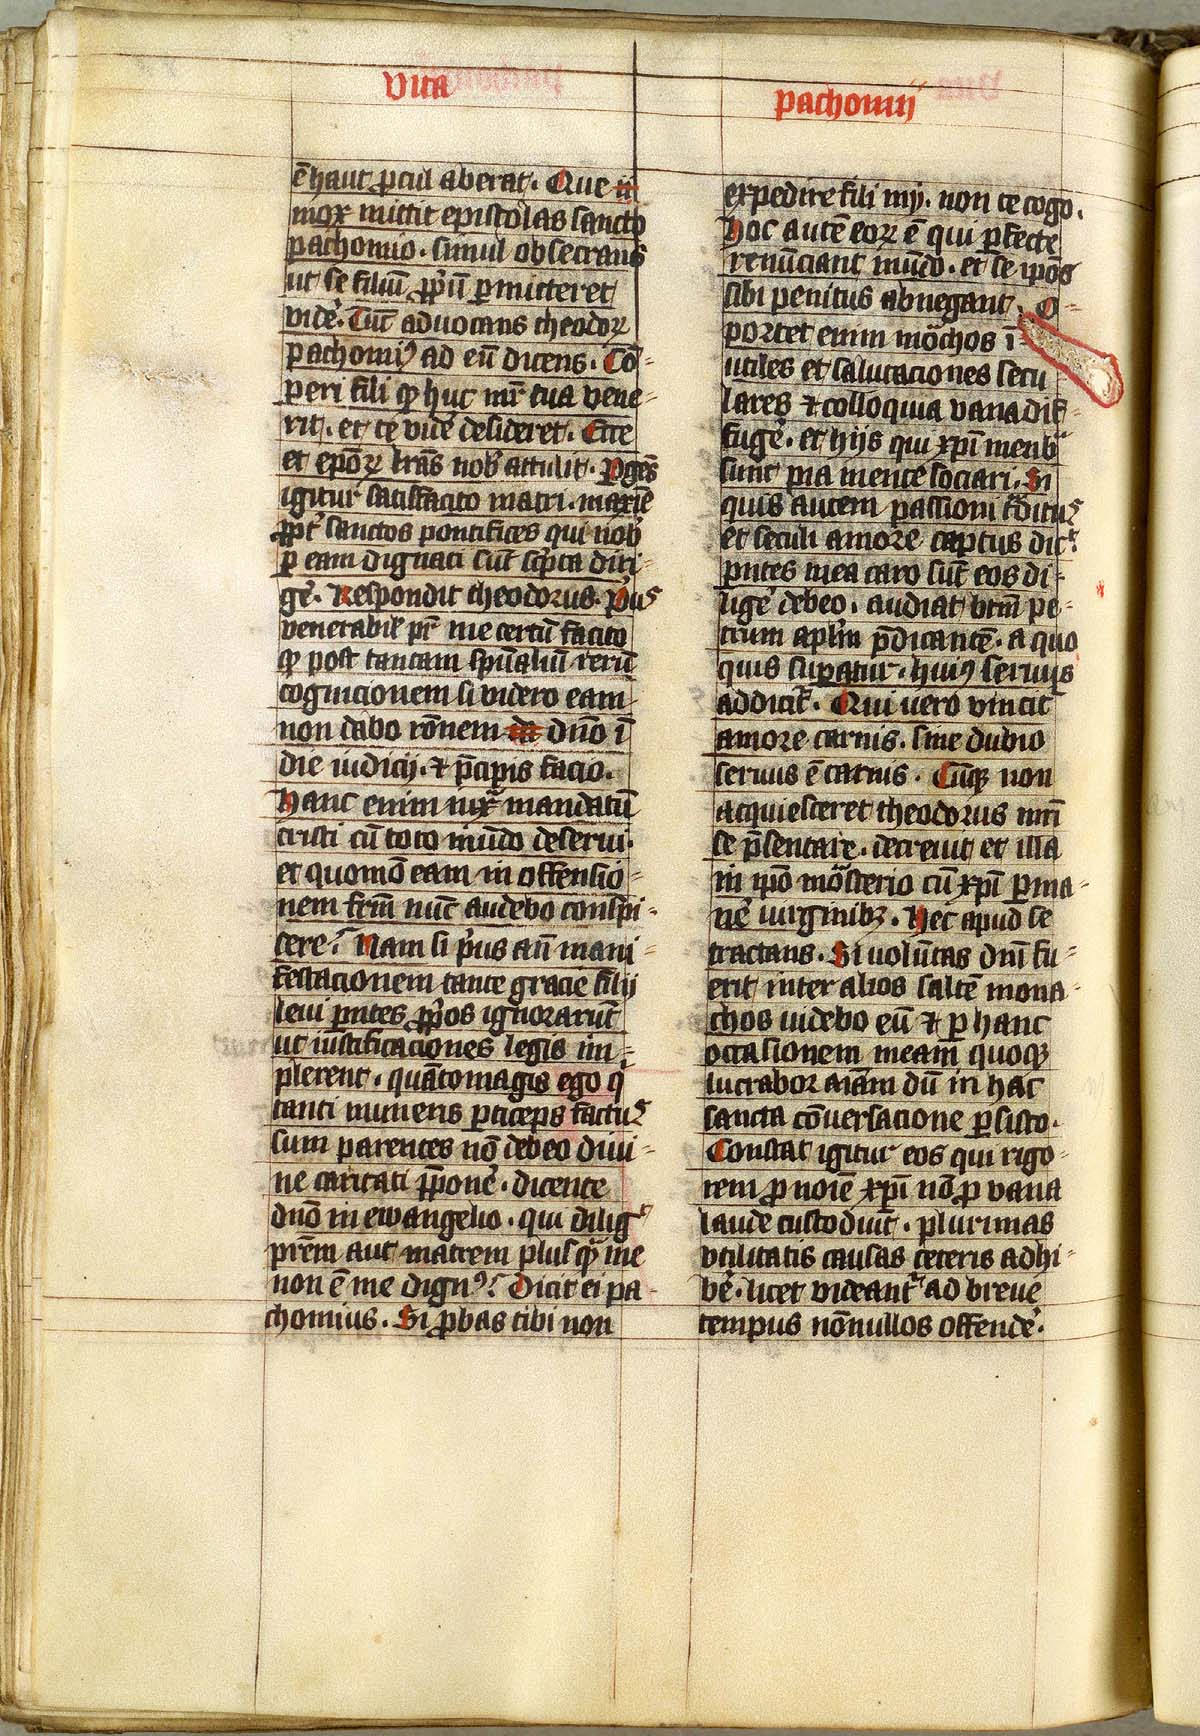 Vita
pachomij
ē haut ꝓcul aberat. Que
mox mittit epistolas sancto
pachomio. simul obsecrans
ut se filiū ꝓpriū ꝑmitteret
vidē. Tūc aduocans theodoꝝ
pachomiꝰ ad eū dicens. Cō-
peri fili ꝙ huc mr̄ tua vene-
rit. et te vidē desideret. Ecce
et epōꝝ lrās nob̄ attulit. Pgēs
igitur satisfacito matri. maxīe
ꝓpt̄ sanctos pontifices qui nob̄
ꝑ eam dignati sūt sc̄pta diri-
gē. Respondit theodorus. Pⁱus
venerabil̄ pr̄ me certū facito
ꝙ post tantam sp̄ualiū rerū
cognicionem si videro eam
non dabo rōnem dn̄o ī
die iudicij. et p̄cipis facio.
Hanc enim iux̄ mandatū
cristi cū toto mūdo deserui.
et quomō eam in offensio-
nem frm̄ nūc audebo conspi-
cere? Nam si pⁱus an̄ mani-
festacionem tante gracie filij
leui ꝑntes ꝓpⁱos ignorarūt
ut iustificaciones legis im-
plerent. quātomagis ego q̄
tanti muneris ꝑticeps factus
sum parentes nō debeo diui-
ne caritati p̄ponē. dicente
dn̄o in ewangelio. qui diliḡ
prēm aut matrem plusq̄ me
non ē me dignꝰ? Dicit ei pa-
chomius. Si ꝓbas tibi non
expedire fili mij. non te cogo.
Hoc autē eoꝝ ē qui ꝑfecte
renūciant mūdo. et se ipōs
sibi penitus abnegant. O-
portet enim mōchos ī-
utiles et salutaciones secu
lares et colloquia vana dif-
fugē. et hijs qui xp̄i menbᵃ
sunt pia mente sociari. Si
quis autem passioni t̄ditus
et seculi amore captus dicᵗ
ꝑntes mea caro sūt eos di-
ligē debeo. audiat btm̄ pe-
trum aplm̄ p̄dicantē. a quo
quis suꝑatur. huiꝰ seruus
addicit̄. Qui vero vincit
amore carnis. sine dubio
seruus ē carnis. Cūqꝫ non
acquiesceret theodorus mr̄i
se p̄sentare. decreuit et illa
in ipō mōsterio cū xp̄i ꝑma-
nē virginibꝫ. Hec apud se
tractans. Si volūtas dn̄i fu-
erit inter alios saltē mona-
chos videbo eū et ꝑ hanc
occasionem meam quoqꝫ
lucrabor aīam dū in hac
sancta cōuersacione ꝑsisto.
Constat igitur eos qui rigo-
rem ꝓ noīe xp̄i nō ꝓ vana
laude custodiūt. plurimas
vtilitatis causas ceteris adhi-
bē. licet videantᵘʳ ad breue
tempus nōnullos offendē.